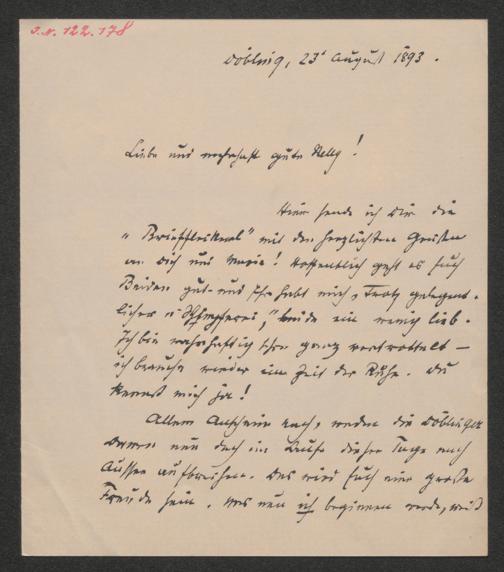 I.N. 122.178
Döbling, 23t August 1893.
Liebe und wahrhaft gute Nelly!
Hier sende ich Dir die
" mit den herzlichsten Grüßen
an Dich und Marie! Hoffentlich geht es Euch
Beiden gut und Ihr habt mich, trotz gelegent-
licher beide ein wenig lieb.
Ich bin wahrhaftig schon ganz vertrottelt —
ich brauche wieder eine Zeit der Ruhe. Du
kennst mich ja!
Allem Anschein nach, werden die Döblinger
Damen nun doch im Laufe dieser Tage nach
Aussee aufbrechen. Das wird Euch eine große
Freude sein. Was nun ich beginnen werde, weiß